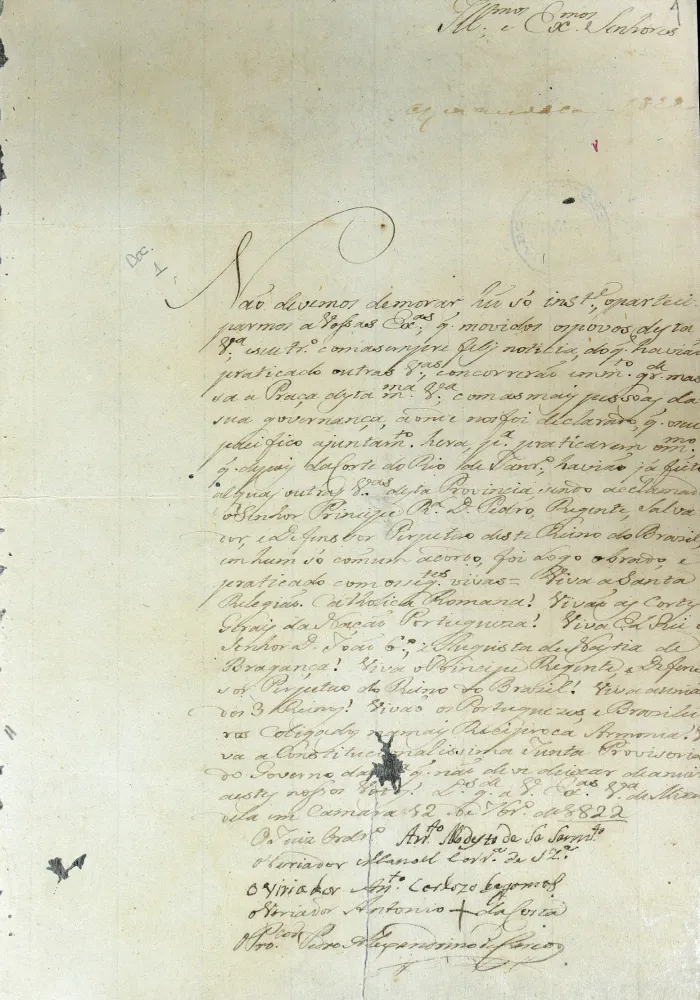 Ill.mos e Ex.mos Senhores
1822
Doc.
1
Não devemos demorar hũ só inst.e, o partici-
parmos a Vossas Ex.as, q. movidos os povos desta
V.a e seu tr.o com a sempre felis noticia, do q. havião
praticado outras V.as concorrerão imm.to gr.de mas-
sa a Praça desta m.ma V.a com as mais pessoas da
sua governança, aonde nos foi declarado, q. o seu
pacifico ajuntam.to hera, p.a praticarem o m.mo
q. depois da Corte do Rio de Janr.o havião já feito
alguas outras V.as desta Provincia, sendo acclamado
o Senhor Principe R.l D. Pedro, Regente, Salva-
dor, e Defensor Perpetuo deste Reino do Brazil
em hum só comum acordo, foi logo obrado, e
praticado com os seg.tes vivas = Viva a Santa
Religião Catholica Romana! Vivão as Cortes
Gerais da Nação Portugueza! Viva El Rei o
Senhor D. João 6.o, e Augusta Dinastia de
Bragança! Viva o Principe Regente, e Defen-
sor Perpetuo do Reino do Brazil! Viva a união
dos 3 Reinos! Vivão os Portuguezes, e Brazilei-
ros Coligados na mais Reciproca Armonia! Vi-
va a Constitucionalissima Junta Provisoria
do Governo da q. não deve deixar de anuir
a estes nossos Votos! D.s g. a V. Ex.as V.a de
dela em Camara 12 de 8br.o de 1822
O Juiz Ordr.o Ant.o Modesto de Sa Sarm.to
O Veriador Manoel Corr.a de Sz.a
O Viriador Ant.o Cardozo
O Veriador Antonio + da Costa
O Pro.cor Pedro Alexandrino